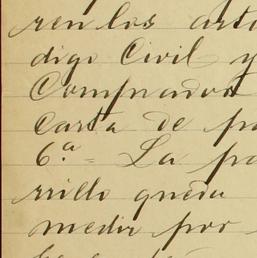 ren los arti
digo Civil y
Comprador
Carta de pa
6.ª = La pa
rrillo queda
medir por